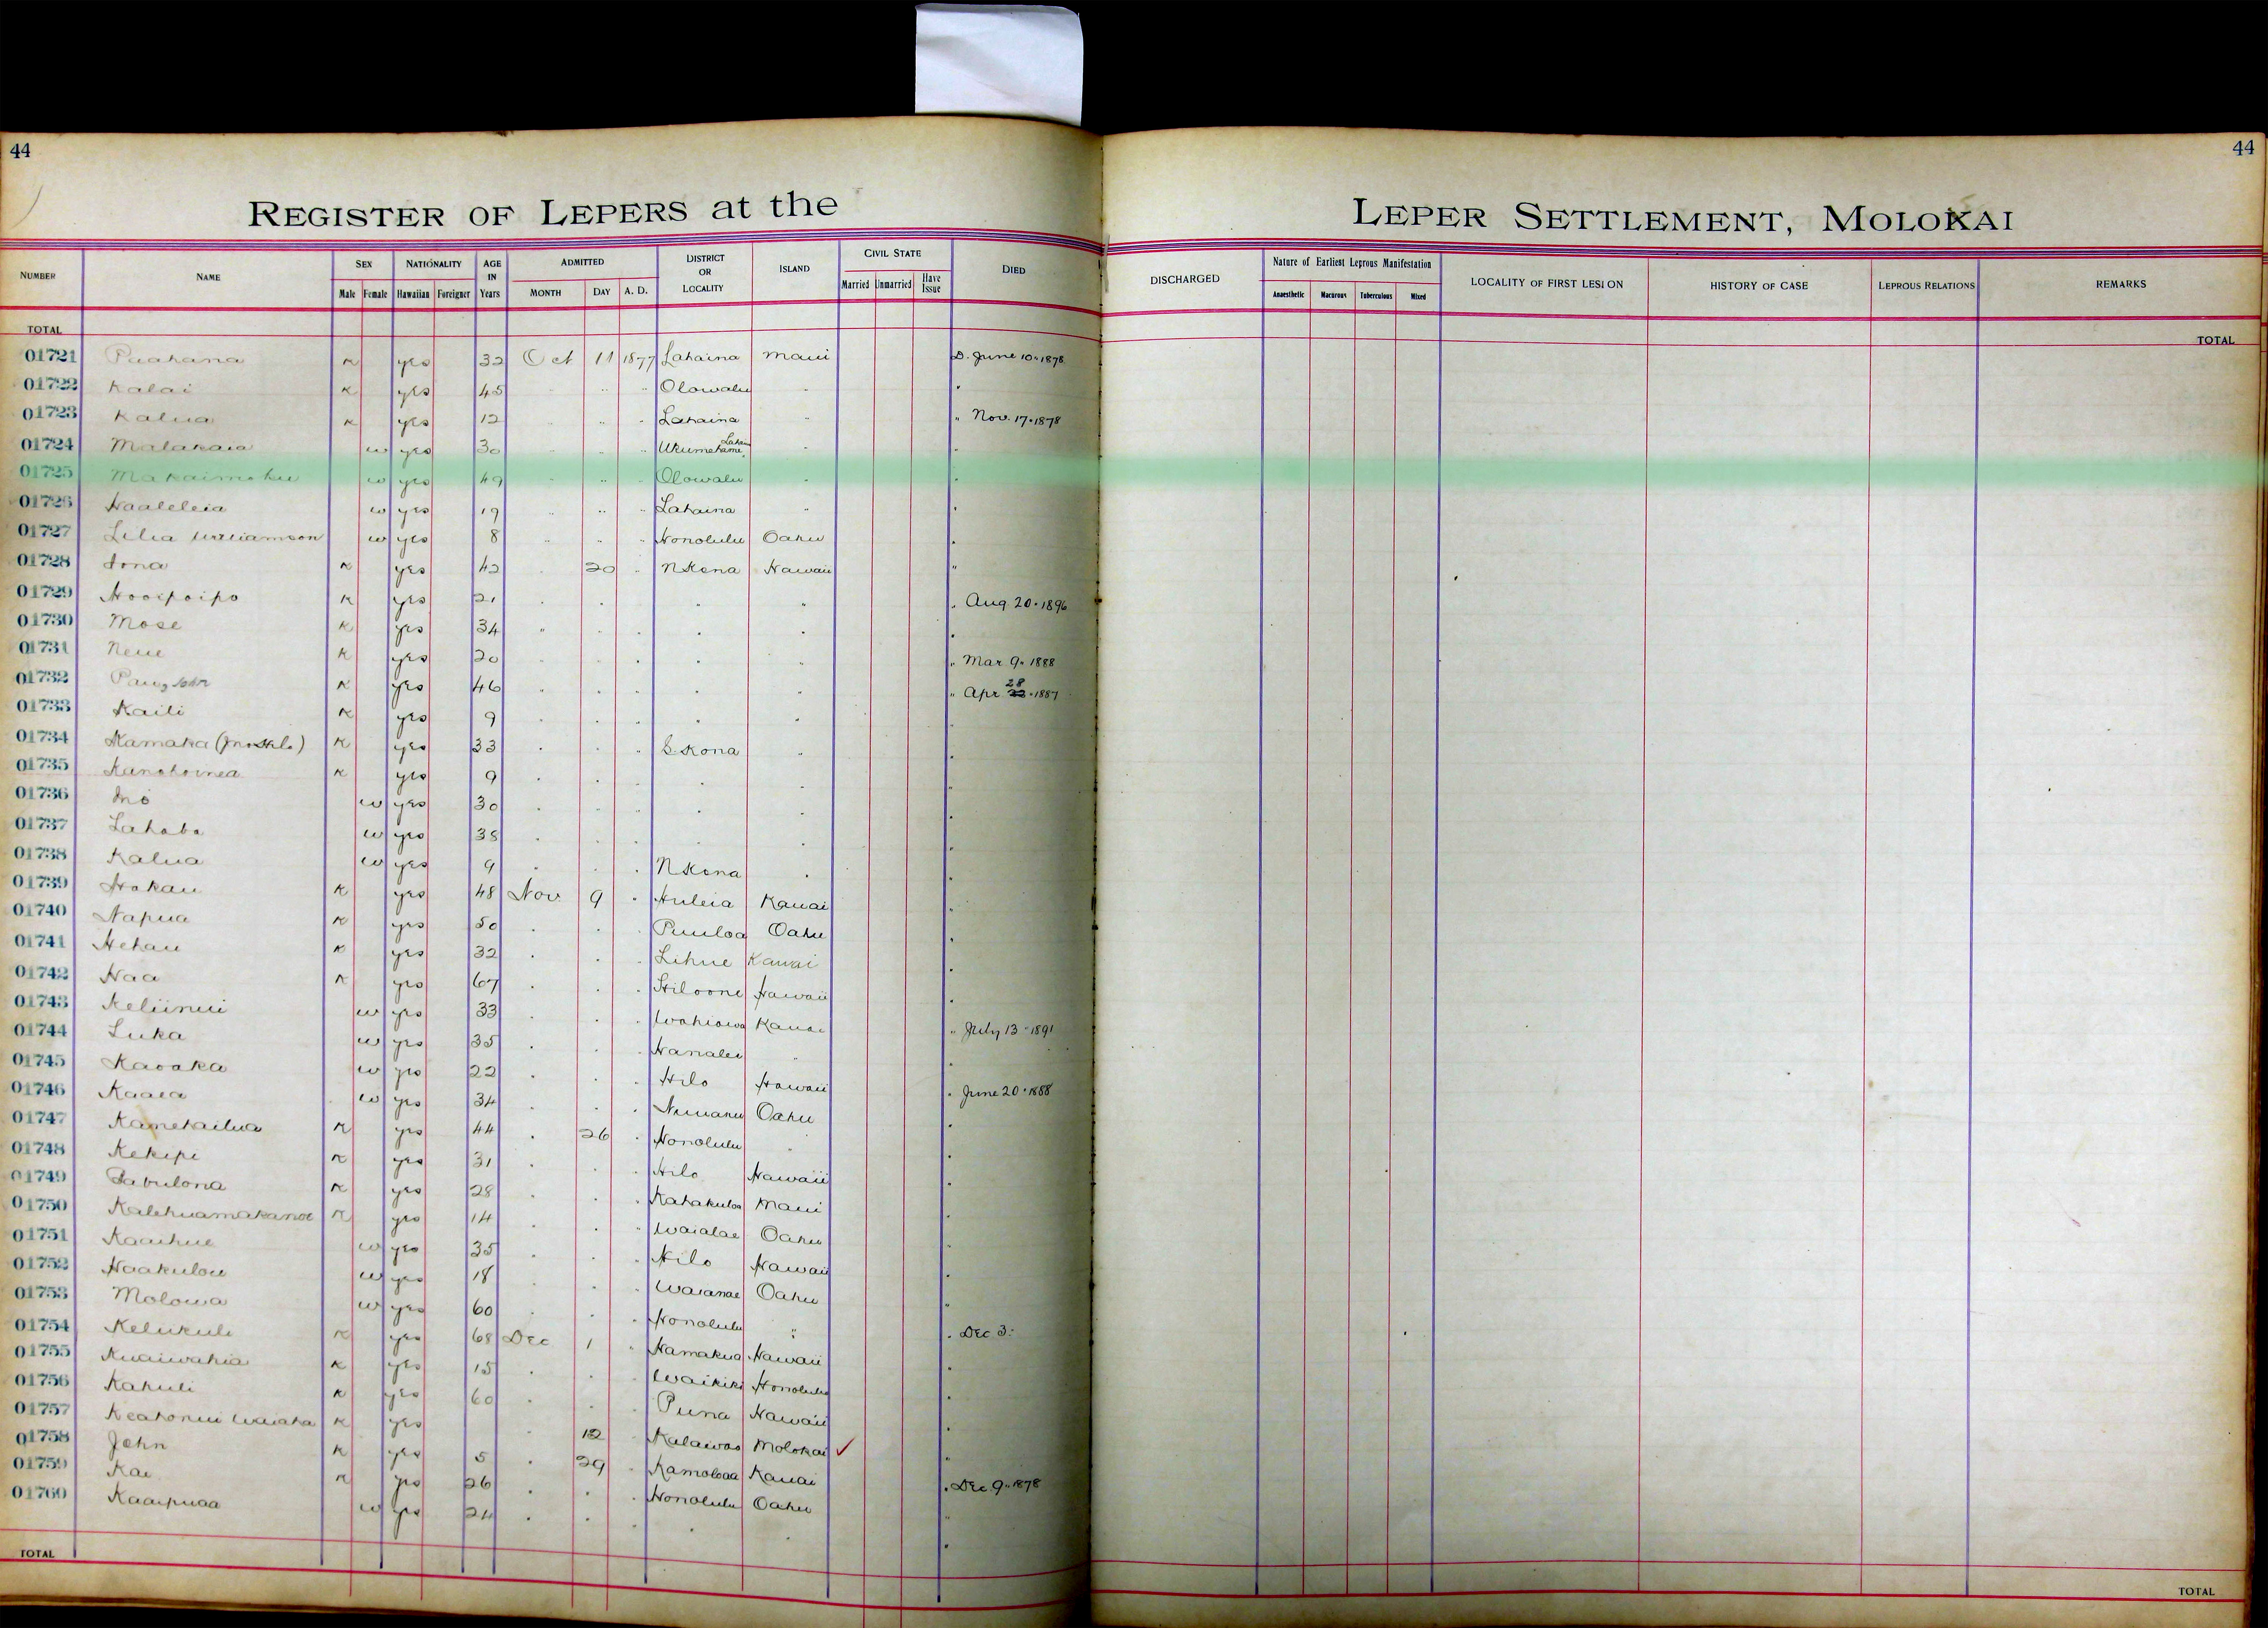 44
44
REGISTER OF LEPERS at the
LEPER SETTLEMENT, MOLOKAI
NUMBER NAME SEX NATIONALITY AGE IN Years ADMITTED DISTRICT OR LOCALITY ISLAND CIVIL STATE DIED
Male Female Hawaiian Foreigner MONTH DAY A. D. Married Unmarried Have Issue
DISCHARGED Nature of Earliest Leprous Manifestation LOCALITY OF FIRST LESION HISTORY OF CASE LEPROUS RELATIONS REMARKS
Anaesthetic Macurous Tuberculous Mixed
TOTAL
TOTAL
01721 Puahana K yes 32 Oct 11 1877 Lahaina Maui D. June 10 " 1878
01722 Kalai K yes 45 " " " Olowalu " "
01723 Kalua K yes 12 " " " Lahaina " " Nov. 17 " 1878
01724 Malakaia w yes 30 " " " Ukumehame, " "
01725 Makaimoku w yes 49 " " " Olowalu " "
01726 Haaleleia w yes 19 " " " Lahaina " "
01727 Lilia Williamson w yes 8 " " " Honolulu Oahu "
01728 Iona K yes 42 " 20 " N Kona Hawaii "
01729 Hooipoipo K yes 21 " " " " " Aug. 20 " 1896
01730 Mose K yes 34 " " " " " "
01731 Neue K yes 20 " " " " " Mar 9 " 1888
01732 John K yes 46 " " " " " Apr 28 " 1887
01733 Kaili K yes 9 " " " " "
01734 Kamaka K yes 33 " " " S. Kona " "
01735 K yes 9 " " " " " "
01736 w yes 30 " " " " " "
01737 w yes 38 " " " " " "
01738 Kalua w yes 9 " " " N Kona " "
01739 Hokau K yes 48 Nov 9 " Huleia Kauai "
01740 Napua K yes 50 " " " Puuloa Oahu "
01741 Hehau K yes 32 " " " Lihue Kauai "
01742 Naa K yes 67 " " " Hiloone Hawaii "
01743 Keliinui w yes 33 " " " Wahiawa Kauai " July 13 " 1891
01744 Luka w yes 35 " " " Hanalei " "
01745 Kaoaka w yes 22 " " " Hilo Hawaii " June 20 " 1888
01746 Kaaea w yes 34 " " " Nuuanu Oahu "
01747 Kamehailua K yes 44 " 26 " Honolulu " "
01748 Kekipi K yes 31 " " " Hilo Hawaii "
01749 Zabulona K yes 28 " " " Kahakuloa Maui "
01750 Kalehuamakanoe K yes 14 " " " Waialae Oahu "
01751 Kaaihue w yes 35 " " " Hilo Hawaii "
01752 Haakulou w yes 18 " " " Waianae Oahu "
01753 Molowa w yes 60 " " " Honolulu " " Dec 3 "
01754 Kelukuli K yes 68 Dec 1 " Hamakua Hawaii "
01755 Kuaiwahia K yes 15 " " " Waikiki Honolulu "
01756 Kahuli K yes 60 " " " Puna Hawaii "
01757 K yes " 12 " Kalawao Molokai ✓ "
01758 John K yes 5 " 29 " Kamoloaa Kauai " Dec 9 " 1878
01759 Kai K yes 26 " " " Honolulu Oahu "
01760 Kaaipuaa w yes 24 " " " " " "
TOTAL
TOTAL